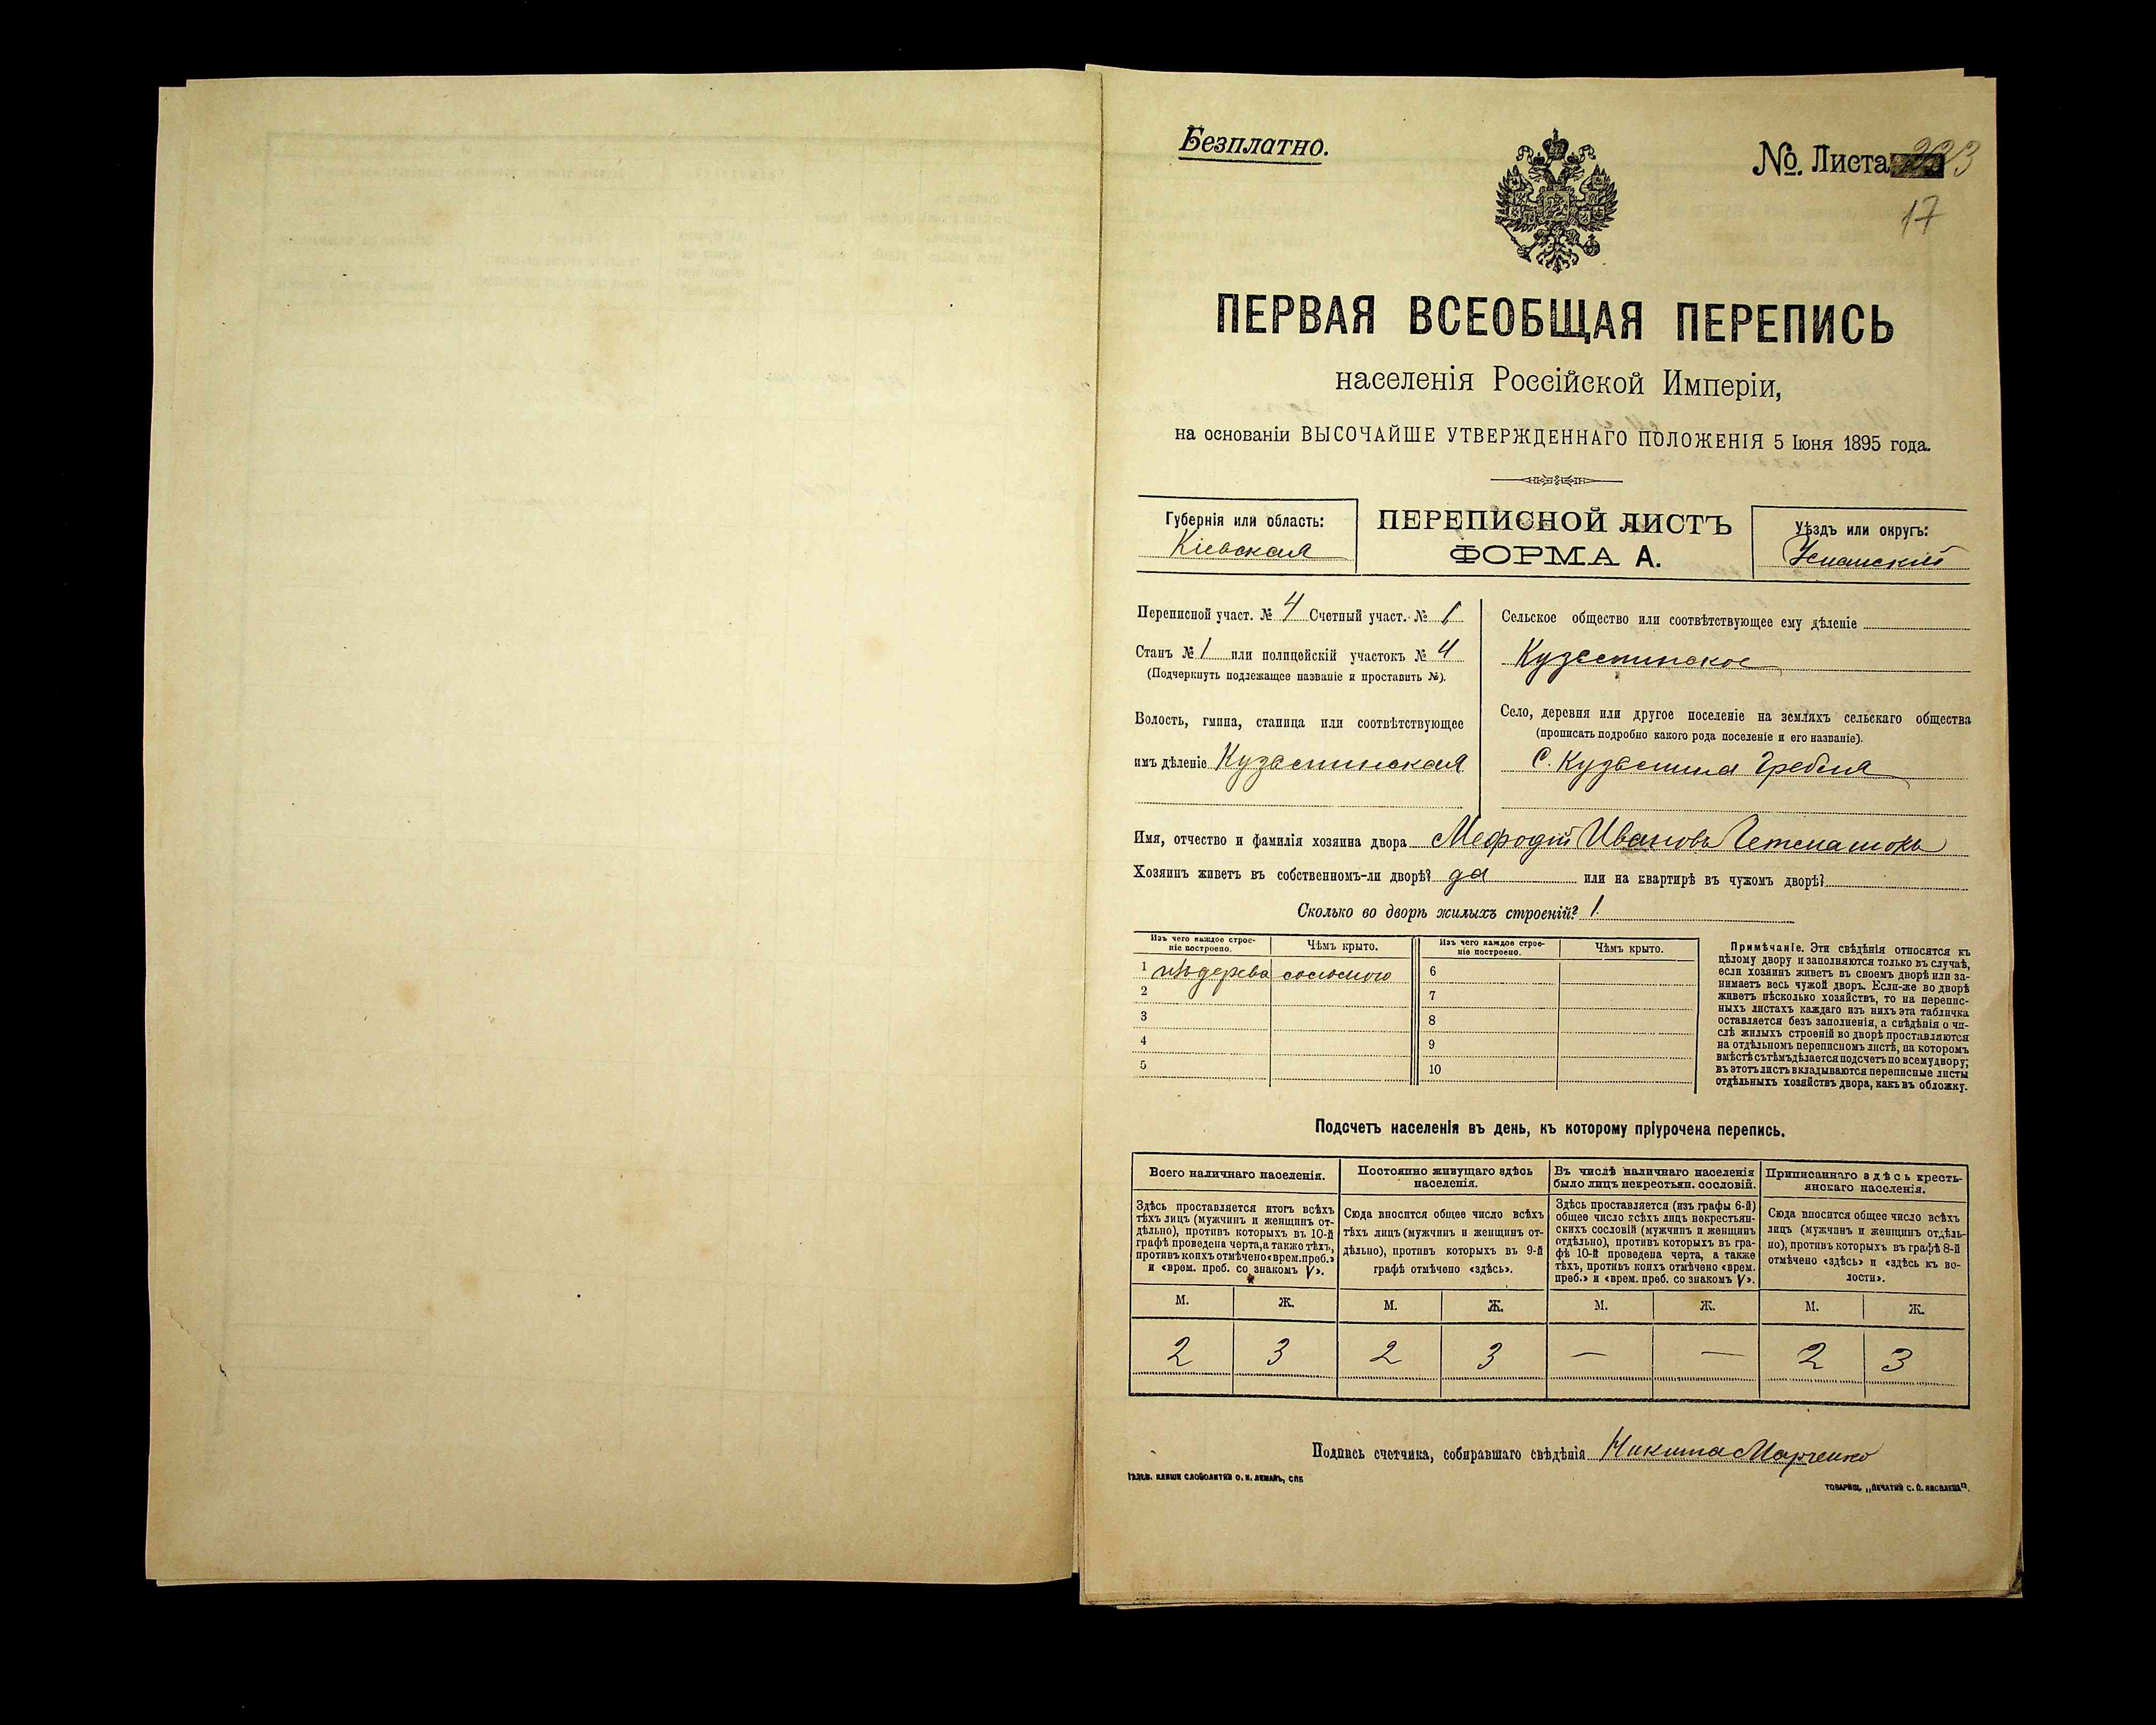 Безплатно.
№. Листа
17
ПЕРВАЯ ВСЕОБЩАЯ ПЕРЕПИСЬ
населенія Россійской Имперіи,
на основаніи ВЫСОЧАЙШЕ УТВЕРЖДЕННАГО ПОЛОЖЕНІЯ 5 Іюня 1895 года.
Губернія или область:
Кіевская
ПЕРЕПИСНОЙ ЛИСТЪ
ФОРМА А.
Уѣздъ или округъ:
Уманскій
Переписной участ. № 4 Счетный участ. № 1
Станъ № 1 или полицейскій участокъ № 4
(Подчеркнуть подлежащее названіе и проставить №).
Волость, гмина, станица или соотвѣтствующее
имъ дѣленіе Кузьминская
Сельское общество или соотвѣтствующее ему дѣленіе
Кузьминское
Село, деревня или другое поселеніе на земляхъ сельскаго общества
(прописать подробно какого рода поселеніе и его названіе).
С. Кузьмина Гребля
Имя, отчество и фамилія хозяина двора Мефодій Ивановъ
Хозяинъ живетъ въ собственномъ-ли дворѣ? да или на квартирѣ въ чужомъ дворѣ?
Сколько во дворѣ жилыхъ строеній? 1.
Изъ чего каждое строе-
ніе построено.
Чѣмъ крыто.
Изъ чего каждое строе-
ніе построено.
Чѣмъ крыто.
1 изъ дерева соломою 6
2 7
3 8
4 9
5 10
Примѣчаніе. Эти свѣдѣнія относятся къ
цѣлому двору и заполняются только въ случаѣ,
если хозяинъ живетъ въ своемъ дворѣ или за-
нимаетъ весь чужой дворъ. Если-же во дворѣ
живетъ нѣсколько хозяйствъ, то на перепис-
ныхъ листахъ каждаго изъ нихъ эта табличка
оставляется безъ заполненія, а свѣдѣнія о чи-
слѣ жилыхъ строеній во дворѣ проставляются
на отдѣльномъ переписномъ листѣ, на которомъ
вмѣстѣ съ тѣмъ дѣлается подсчетъ по всему двору;
въ этотъ листъ вкладываются переписные листы
отдѣльныхъ хозяйствъ двора, какъ въ обложку.
Подсчетъ населенія въ день, къ которому пріурочена перепись.
Всего наличнаго населенія.
Здѣсь проставляется итогъ всѣхъ
тѣхъ лицъ (мужчинъ и женщинъ от-
дѣльно), противъ которыхъ въ 10-й
графѣ проведена черта, а также тѣхъ,
противъ коихъ отмѣчено «врем. преб.»
и «врем. преб. со знакомъ V».
Постоянно живущаго здѣсь
населенія.
Сюда вносится общее число всѣхъ
тѣхъ лицъ (мужчинъ и женщинъ от-
дѣльно), противъ которыхъ въ 9-й
графѣ отмѣчено «здѣсь».
Въ числѣ наличнаго населенія
было лицъ некрестьян. сословій.
Здѣсь проставляется (изъ графы 6-й)
общее число всѣхъ лицъ некрестьян-
скихъ сословій (мужчинъ и женщинъ
отдѣльно), противъ которыхъ въ гра-
фѣ 10-й проведена черта, а также
тѣхъ, противъ коихъ отмѣчено «врем.
преб.» и «врем. преб. со знакомъ V».
Приписаннаго здѣсь кресть-
янскаго населенія.
Сюда вносится общее число всѣхъ
лицъ (мужчинъ и женщинъ отдѣль-
но), противъ которыхъ въ графѣ 8-й
отмѣчено «здѣсь» и «здѣсь къ во-
лости».
М. Ж. М. Ж. М. Ж. М. Ж.
2 3 2 3 — — 2 3
Подпись счетчика, собиравшаго свѣдѣнія Никита Марченко
КЛИШЕ СЛОВОЛИТНИ О. И. ЛЕМАНЪ, СПБ
ТОВАРИЩ. „ПЕЧАТНЯ С. П. ЯКОВЛЕВА".